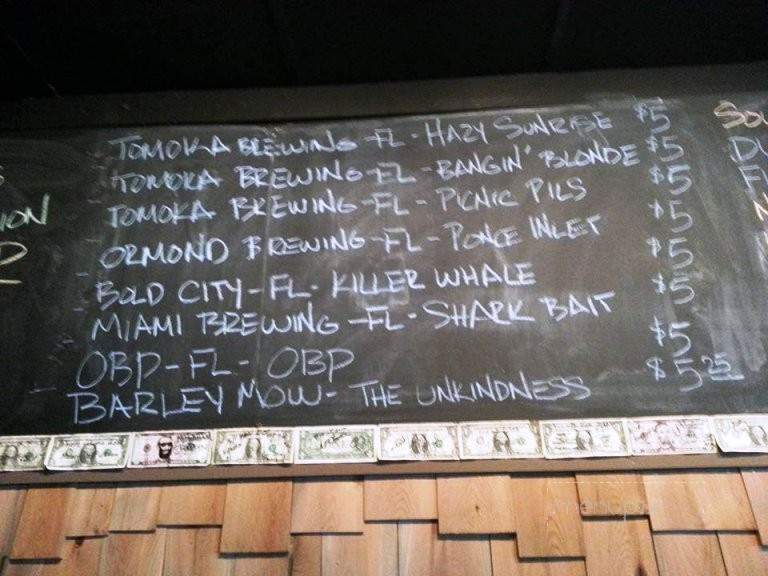 TOMOKA BREWING-FL-HAZY SUNRISE $5
TOMOKA BREWING-FL-BANGIN' BLONDE $5
TOMOKA BREWING-FL-PICNIC PILS $5
ORMOND BREWING-FL-PONCE INLET $5
BOLD CITY-FL-KILLER WHALE $5
MIAMI BREWING-FL-SHARK BAIT $5
OBP-FL-OBP $5
BARLEY MOW-THE UNKINDNESS $5.25
ION